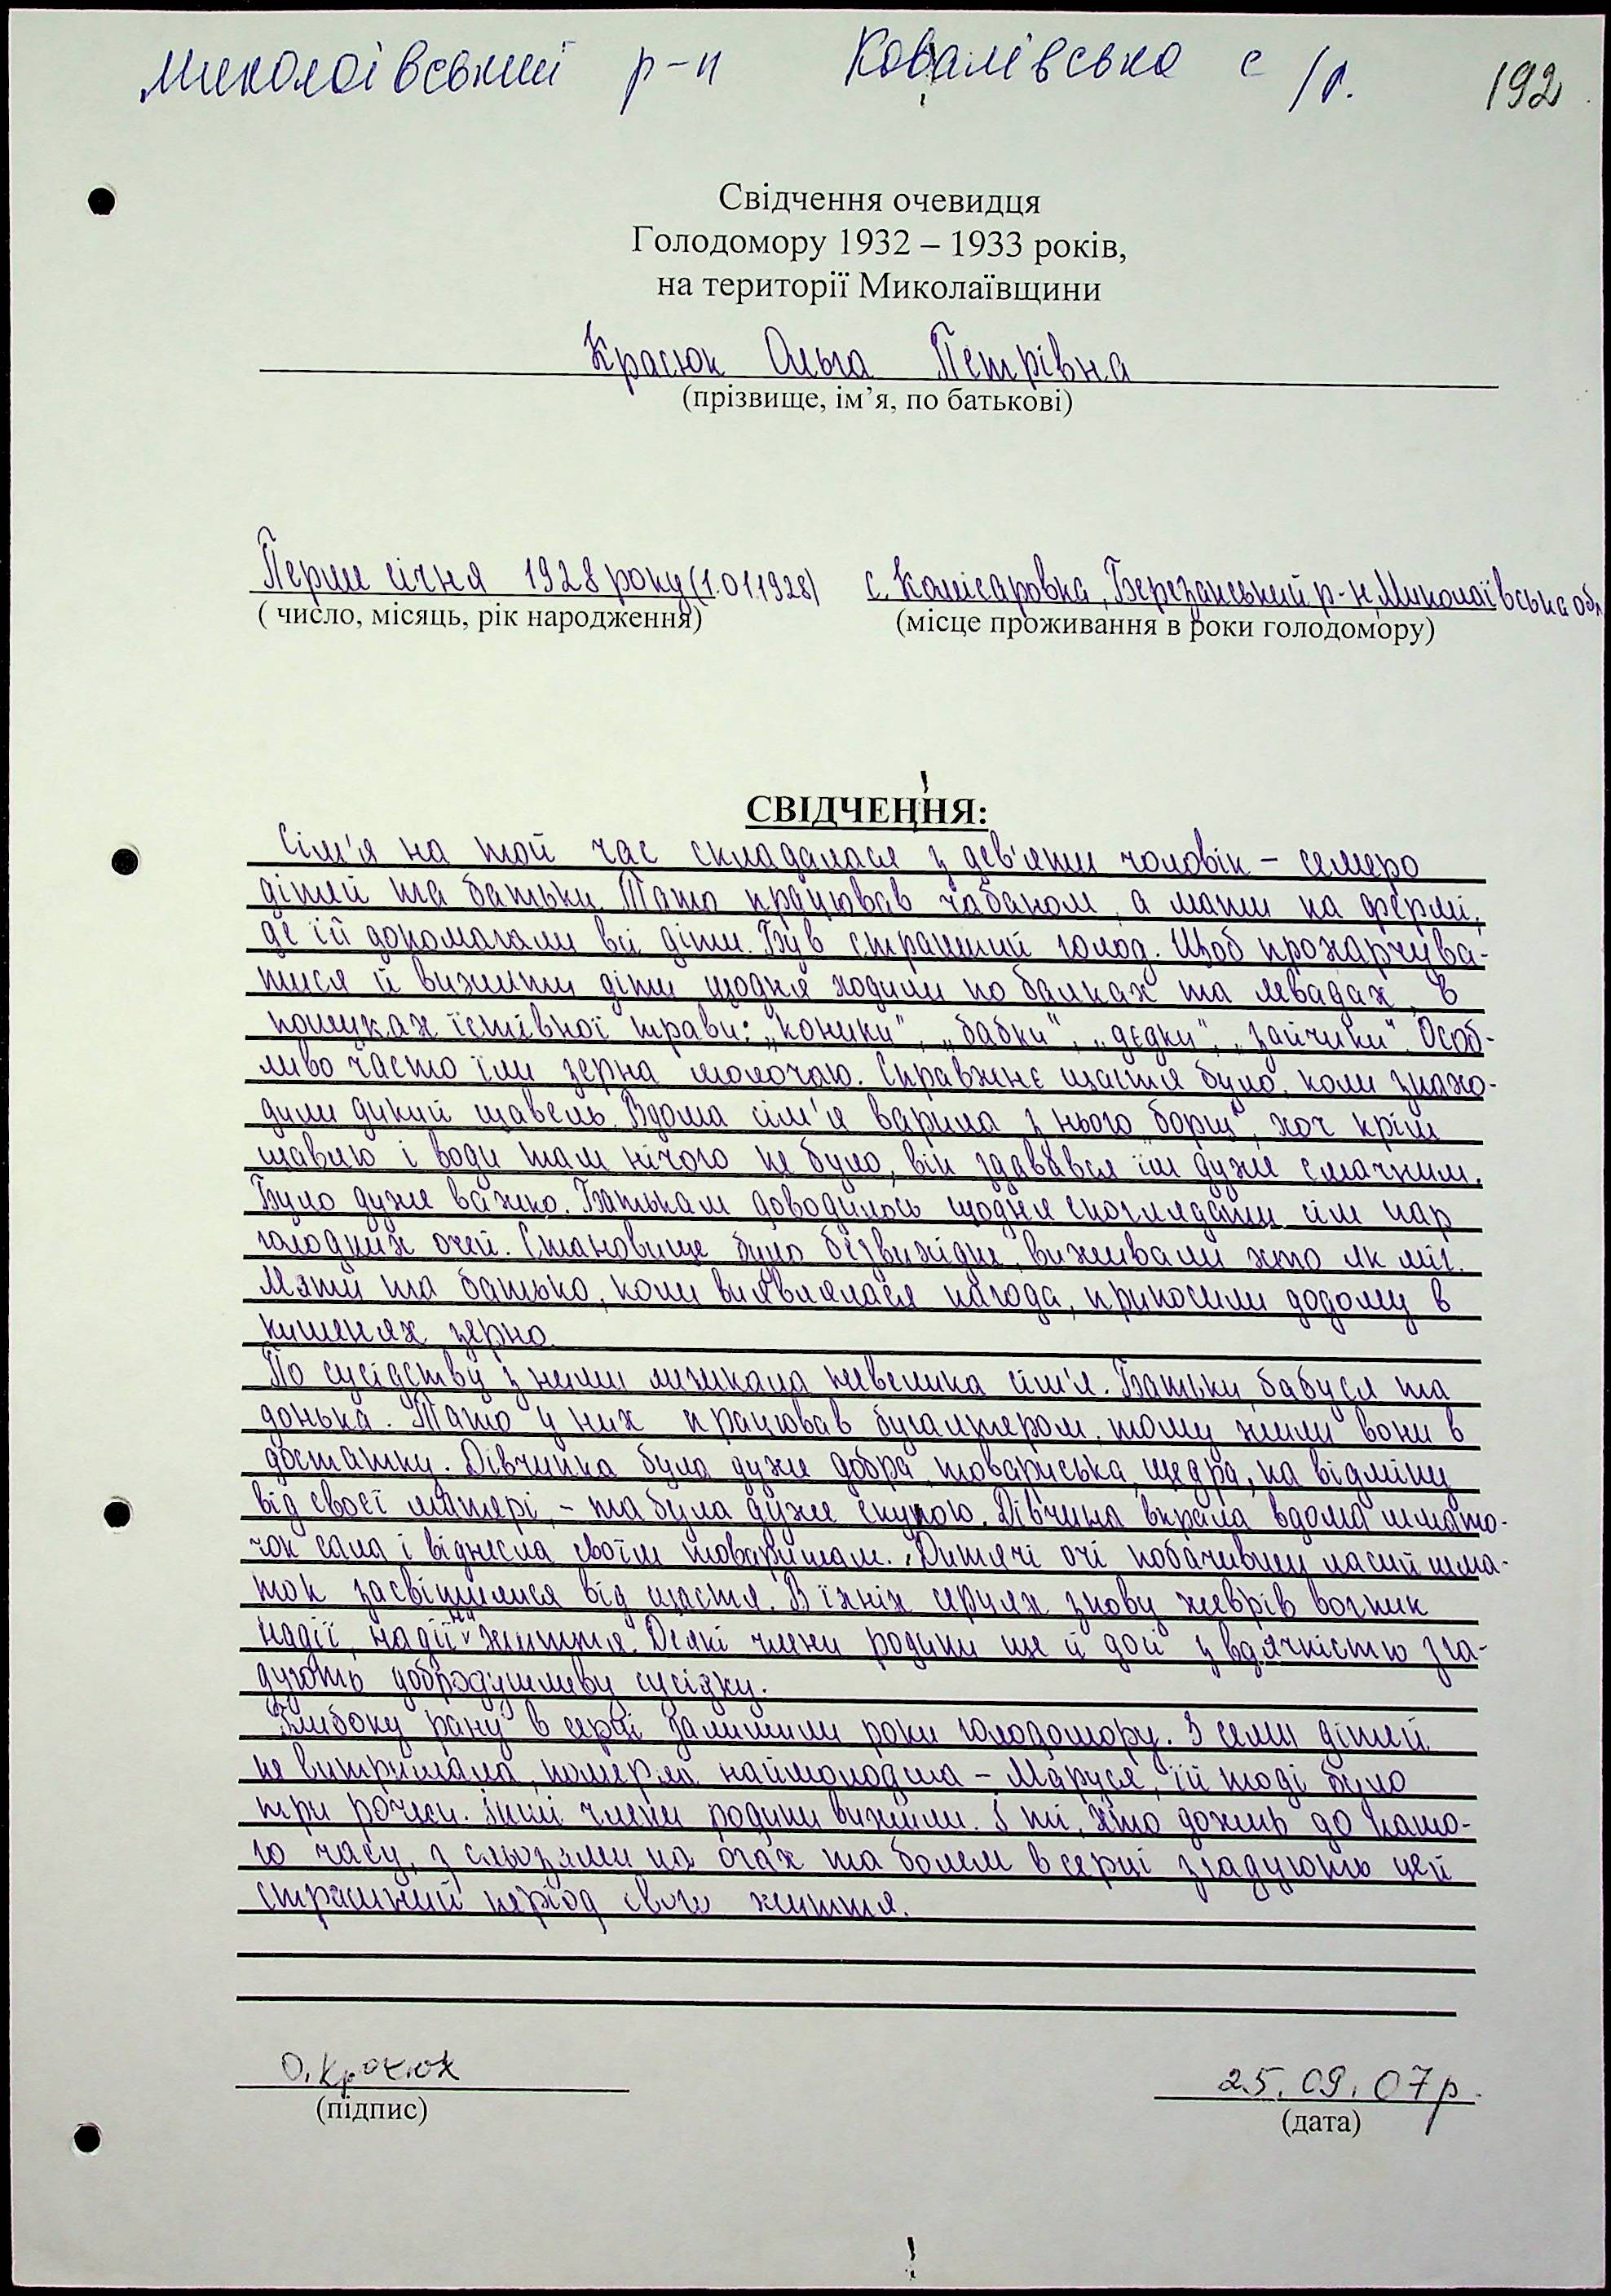 Миколаївський р-н Ковалівська с/р. 192
Свідчення очевидця
Голодомору 1932 – 1933 років,
на території Миколаївщини
Красюк Ольга Петрівна
(прізвище, ім’я, по батькові)
Перше січня 1928 року (1.01.1928) с. Комісаровка, Березанський р-н, Миколаївська обл
( число, місяць, рік народження) (місце проживання в роки голодомору)
СВІДЧЕННЯ:
Сім'я на той час складалася з дев'яти чоловік – семеро
дітей та батьки. Тато працював чабаном, а мати на фермі,
де їй допомагали всі діти. Був страшний голод. Щоб прохарчува-
тися й вижити діти щодня ходили по балках та левадах, в
пошуках їстівної трави: „коники", „бабки", „дєдки", „зайчики". Особ-
ливо часто їли зерна молочаю. Справжнє щастя було, коли знахо-
дили дикий щавель. Вдома сім'я варила з нього „борщ", хоч крім
щавлю і води там нічого не було, він здавався їм дуже смачним.
Було дуже важко. Батькам доводилось щодня споглядати сім пар
голодних очей. Становище було безвихідне, виживали хто як міг.
Мати та батько, коли виявлялася нагода, приносили додому в
кишенях зерно.
По сусідству з ними мешкала невелика сім'я. Батьки, бабуся та
донька. Тато у них працював бугалтером, тому жили вони в
достатку. Дівчинка була дуже добра, товариська, щедра, на відміну
від своєї матері, – та була дуже скупою. Дівчина вкрала вдома шмато-
чок сала і віднесла своїм товаришам. Дитячі очі побачивши ласий шма-
ток засвітилися від щастя. В їхніх серцях знову жеврів вогник
надії, надії на життя. Деякі члени родини ще й досі з вдячністю зга-
дують добродушливу сусідку.
Глибоку рану в серці залишили роки голодомору. З семи дітей
не витримала, померла наймолодша – Маруся, їй тоді було
три рочки. Інші члени родини вижили. І ті, хто дожив до нашо-
го часу, з сльозами на очах та болем в серці згадують цей
страшний період свого життя.
О. Красюк 25.09.07р.
(підпис) (дата)